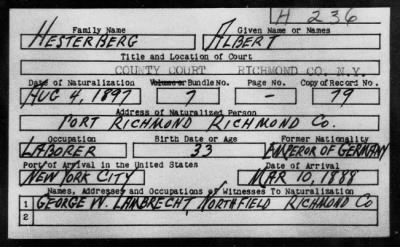 H 236
Family Name Given Name or Names
HESTERBERG ALBERT
Title and Location of Court
COUNTY COURT RICHMOND CO. N.Y.
Date of Naturalization Volume or Bundle No. Page No. Copy of Record No.
AUG 4, 1897 7 - 79
Address of Naturalized Person
PORT RICHMOND RICHMOND CO.
Occupation Birth Date or Age Former Nationality
LABORER 33 EMPEROR OF GERMANY
Port of Arrival in the United States Date of Arrival
NEW YORK CITY MAR 10, 1888
Names, Addresses and Occupations of Witnesses To Naturalization
1 GEORGE W. LAMBRECHT, NORTHFIELD RICHMOND CO
2